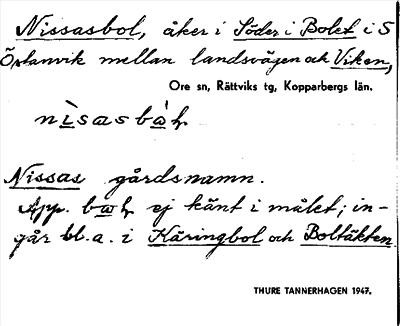 Nissasbol, åker i Söder i Bolet i S
Östanvik mellan landsvägen och Viken,
Ore sn, Rättviks tg, Kopparbergs län.
nìsasbàɫ
Nissas gårdsnamn.
App. baɫ ej känt i målet; in-
går bl.a. i Käringbol och Boltäkten.
THURE TANNERHAGEN 1947.